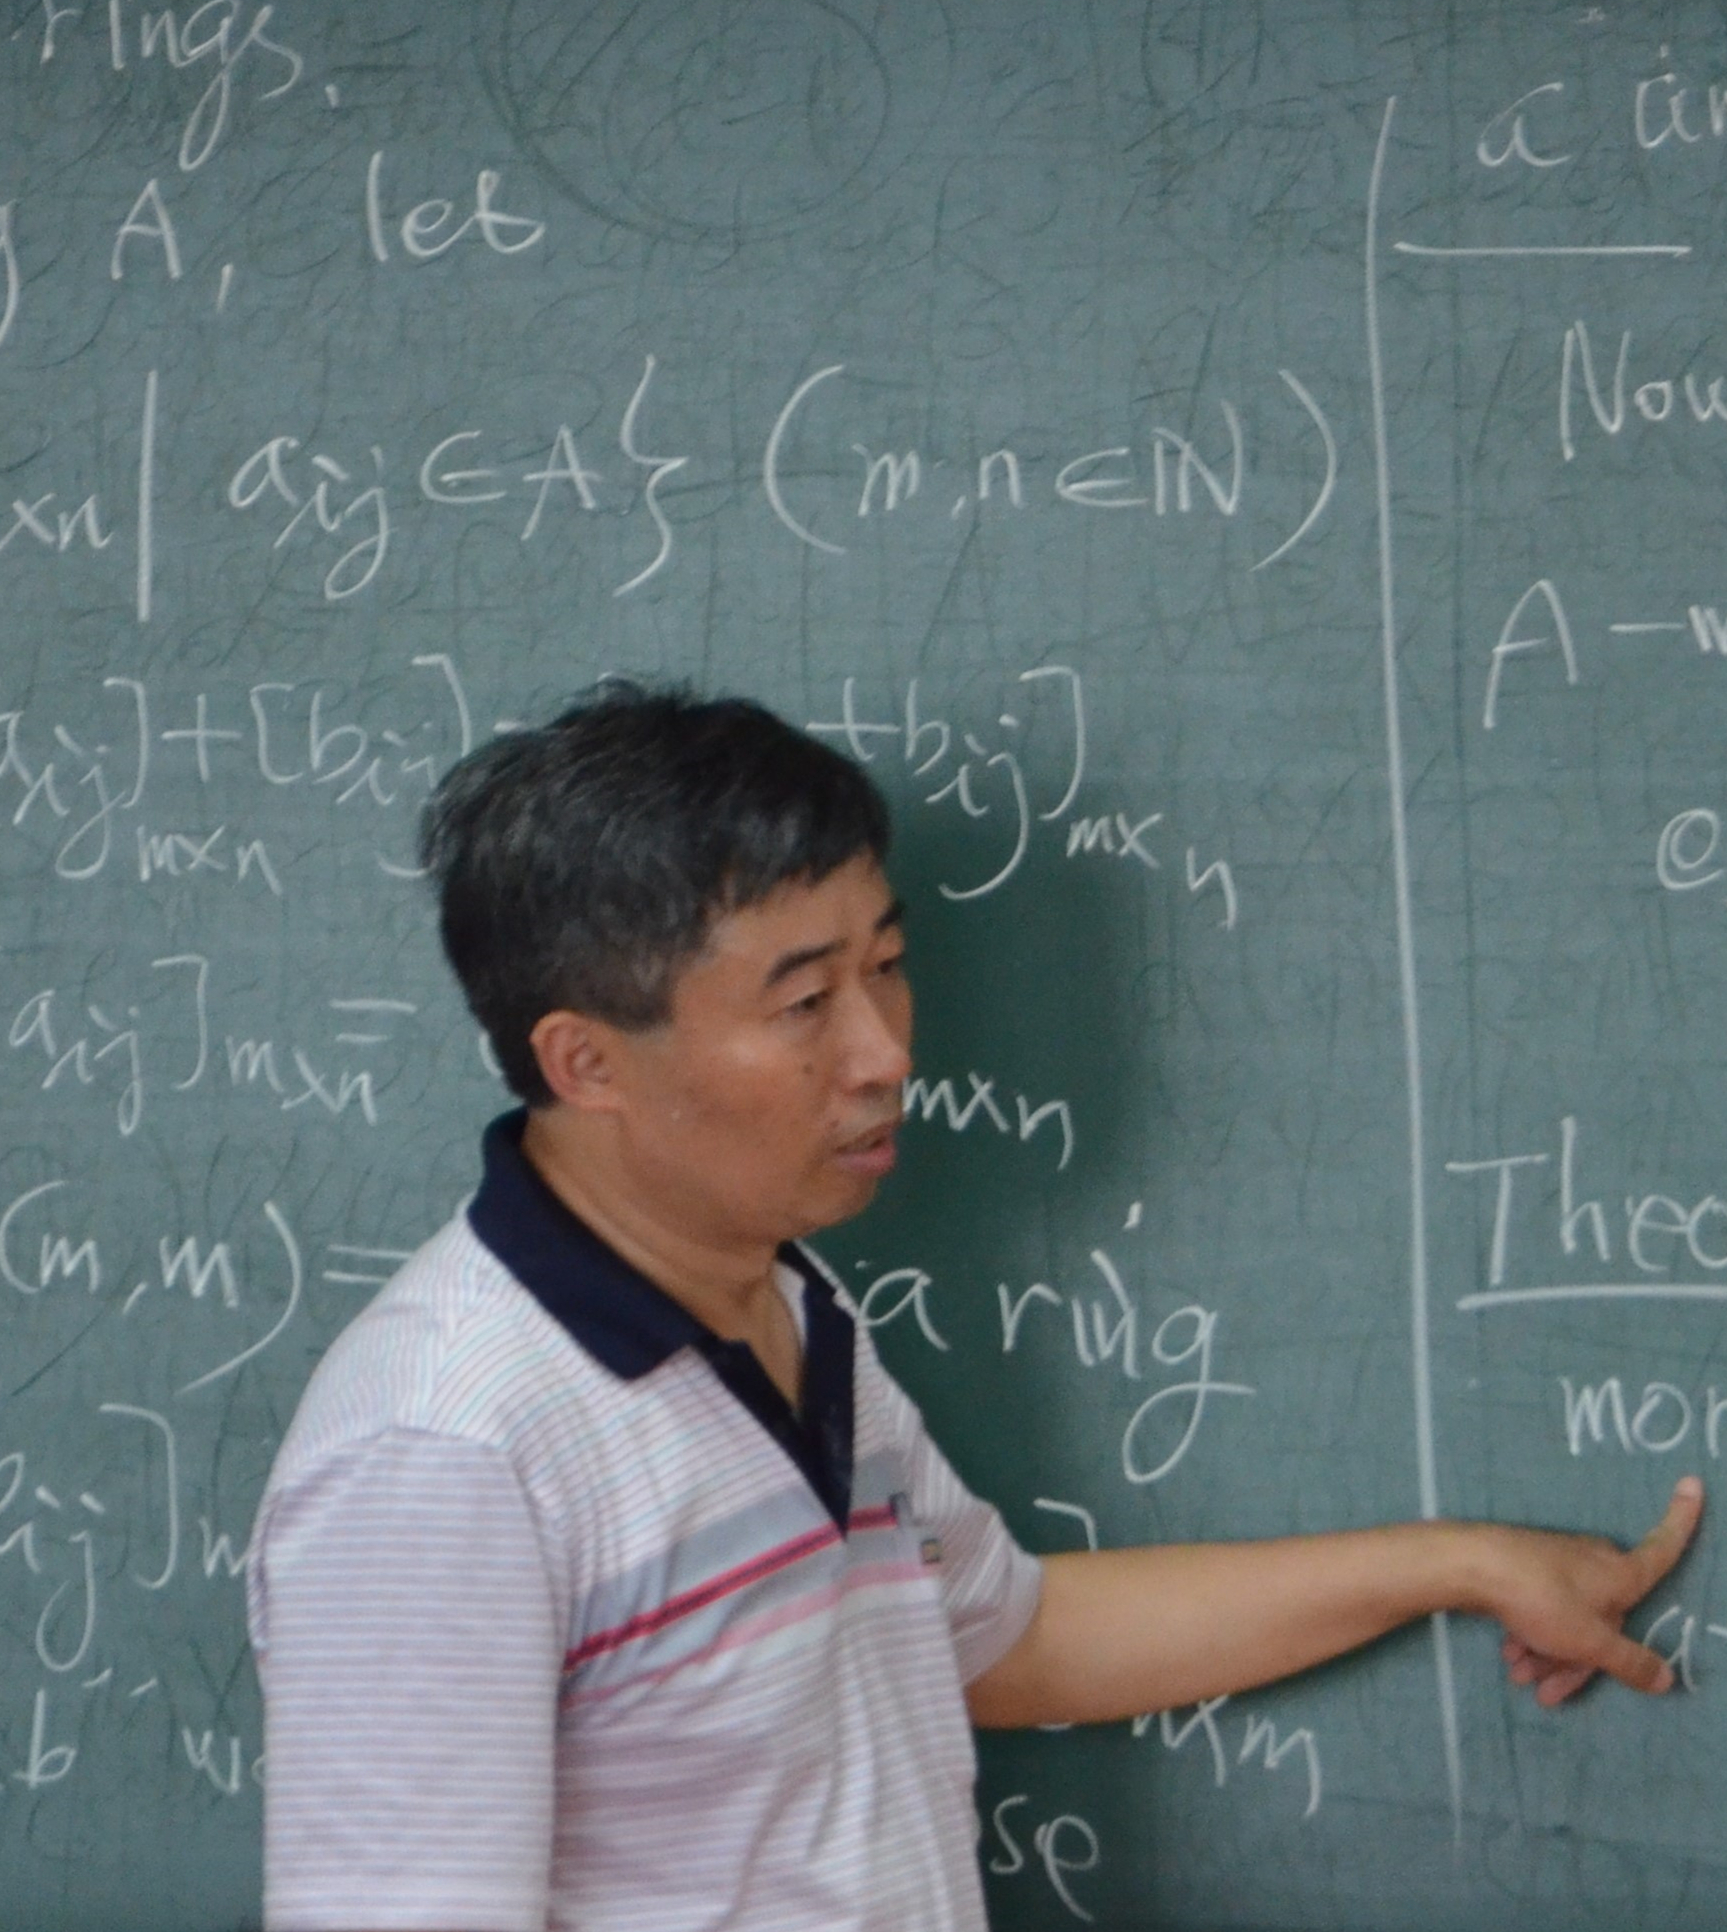 rings.
A, let
xn | aij ∈ A } (m,n ∈ ℕ)
aij] + [bij] + bij]
mxn mxn
aij]mxn = mxn
(m,m) = a ring
ij]m ]nxm
b
se
a
Now
A-
Theo
mor